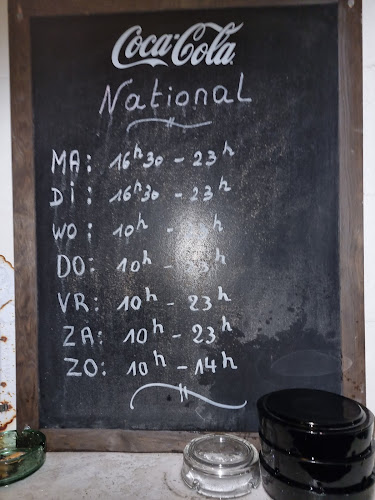 Coca-Cola
National
MA: 16h30 - 23h
Di: 16h30 - 23h
WO: 10h - 23h
DO: 10h - 23h
VR: 10h - 23h
ZA: 10h - 23h
ZO: 10h - 14h